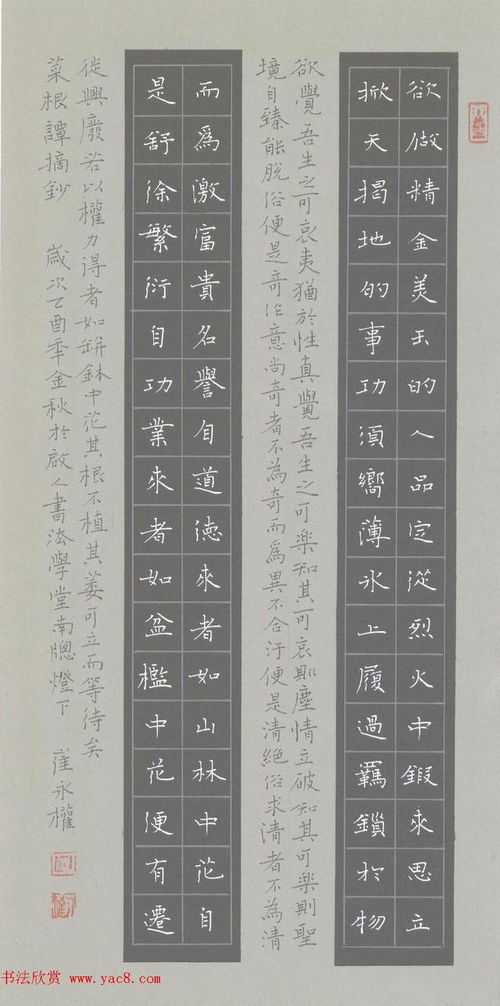 欲做精金美玉的人品定從烈火中鍛來思立
掀天揭地的事功須嚮薄氷上履過羈鎖於物
欲覺吾生之可哀夷猶於性真覺吾生之可樂知其可哀則塵情立破知其可樂則聖
境自臻能脫俗便是奇作意尚奇者不為奇而爲異不合汙便是清絕俗求清者不為清
而爲激富貴名譽自道德來者如山林中花自
是舒徐繁衍自功業來者如盆檻中花便有遷
從興廢若以權力得者如缾鉢中花其根不植其萎可立而等待矣
菜根譚摘鈔 歲次乙酉年金秋於啟人書法學堂南牕燈下 崔永權
书法欣赏 www.yac8.com